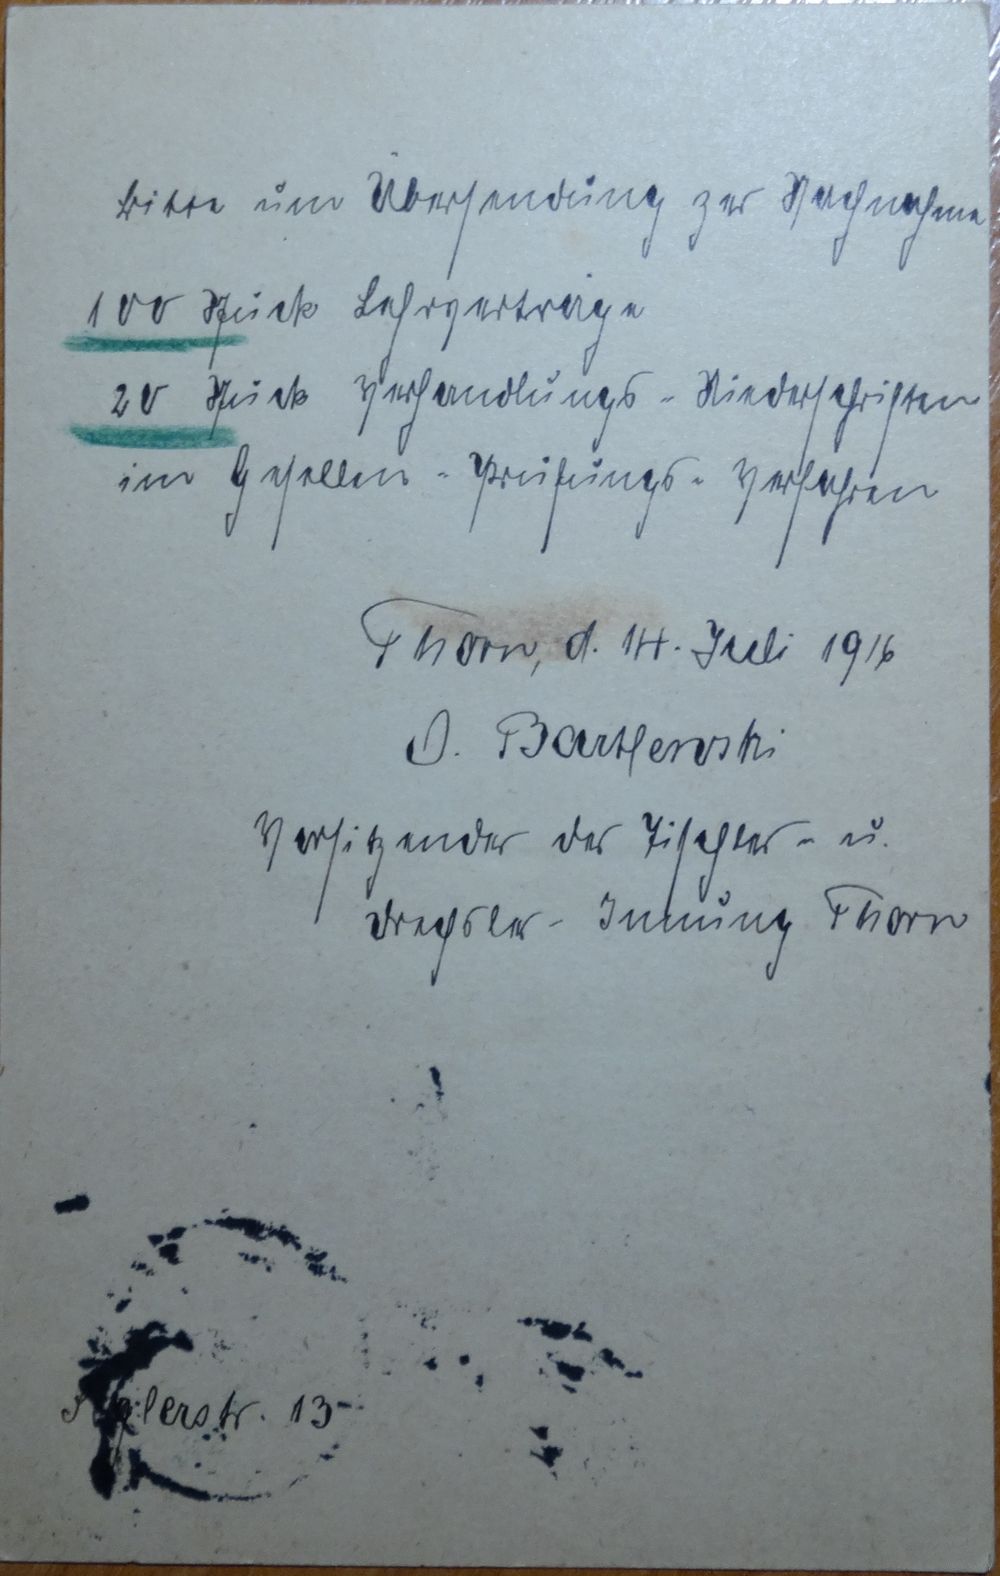 Bitte um Übersendung per Nachnahme
100 Stück Lehrverträge
20 Stück Verhandlungs-Niederschriften
im Gesellen-Prüfungs-Verfahren
Thorn, d. 14. Juli 1916
O. Bartlewski
Vorsitzender der Tischler- u.
Drechsler-Innung Thorn
13